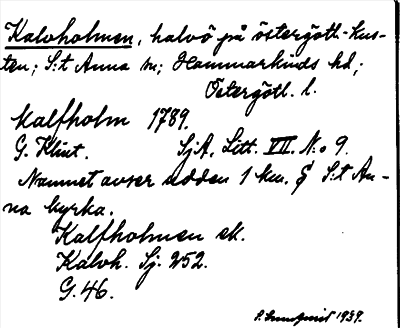 Kalvholmen, halvö på östergötl. kus-
ten; S:t Anna sn; Hammarkinds hd;
Östergötl. l.
Kalfholm 1789.
G. Klint. SjA. Litt. VII. N:o 9.
Namnet avser udden 1 km. S S:t An-
na kyrka.
Kalfholmen ek.
Kalvh. Sj. 252.
G. 46.
1939.